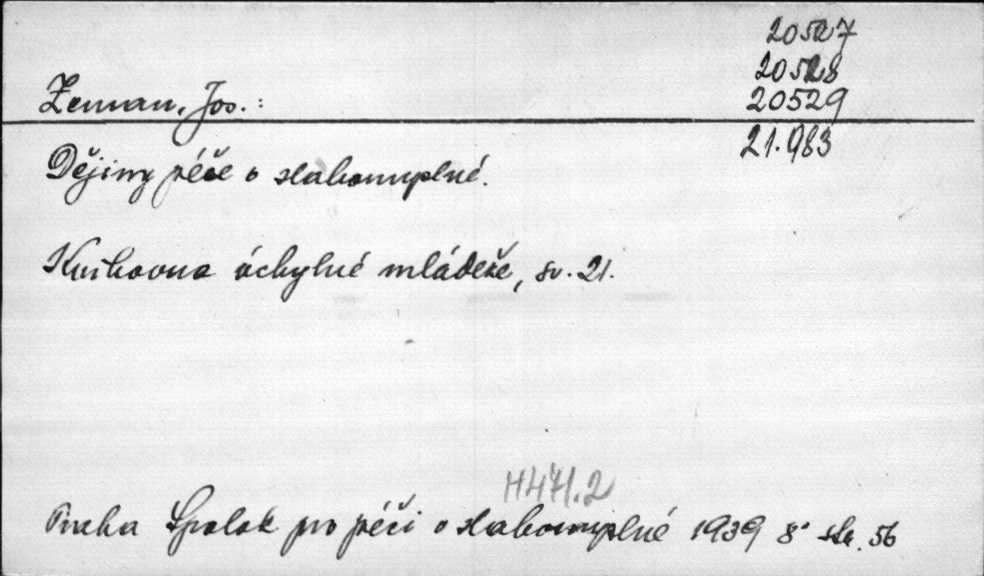 20527
20528
Zeman, Jos.:
20529
21.983
Dějiny péče o slabomyslné.
Knihovna úchylné mládeže, sv. 21.
H471.2
Praha Spolek pro péči o slabomyslné 1939 8° str. 56